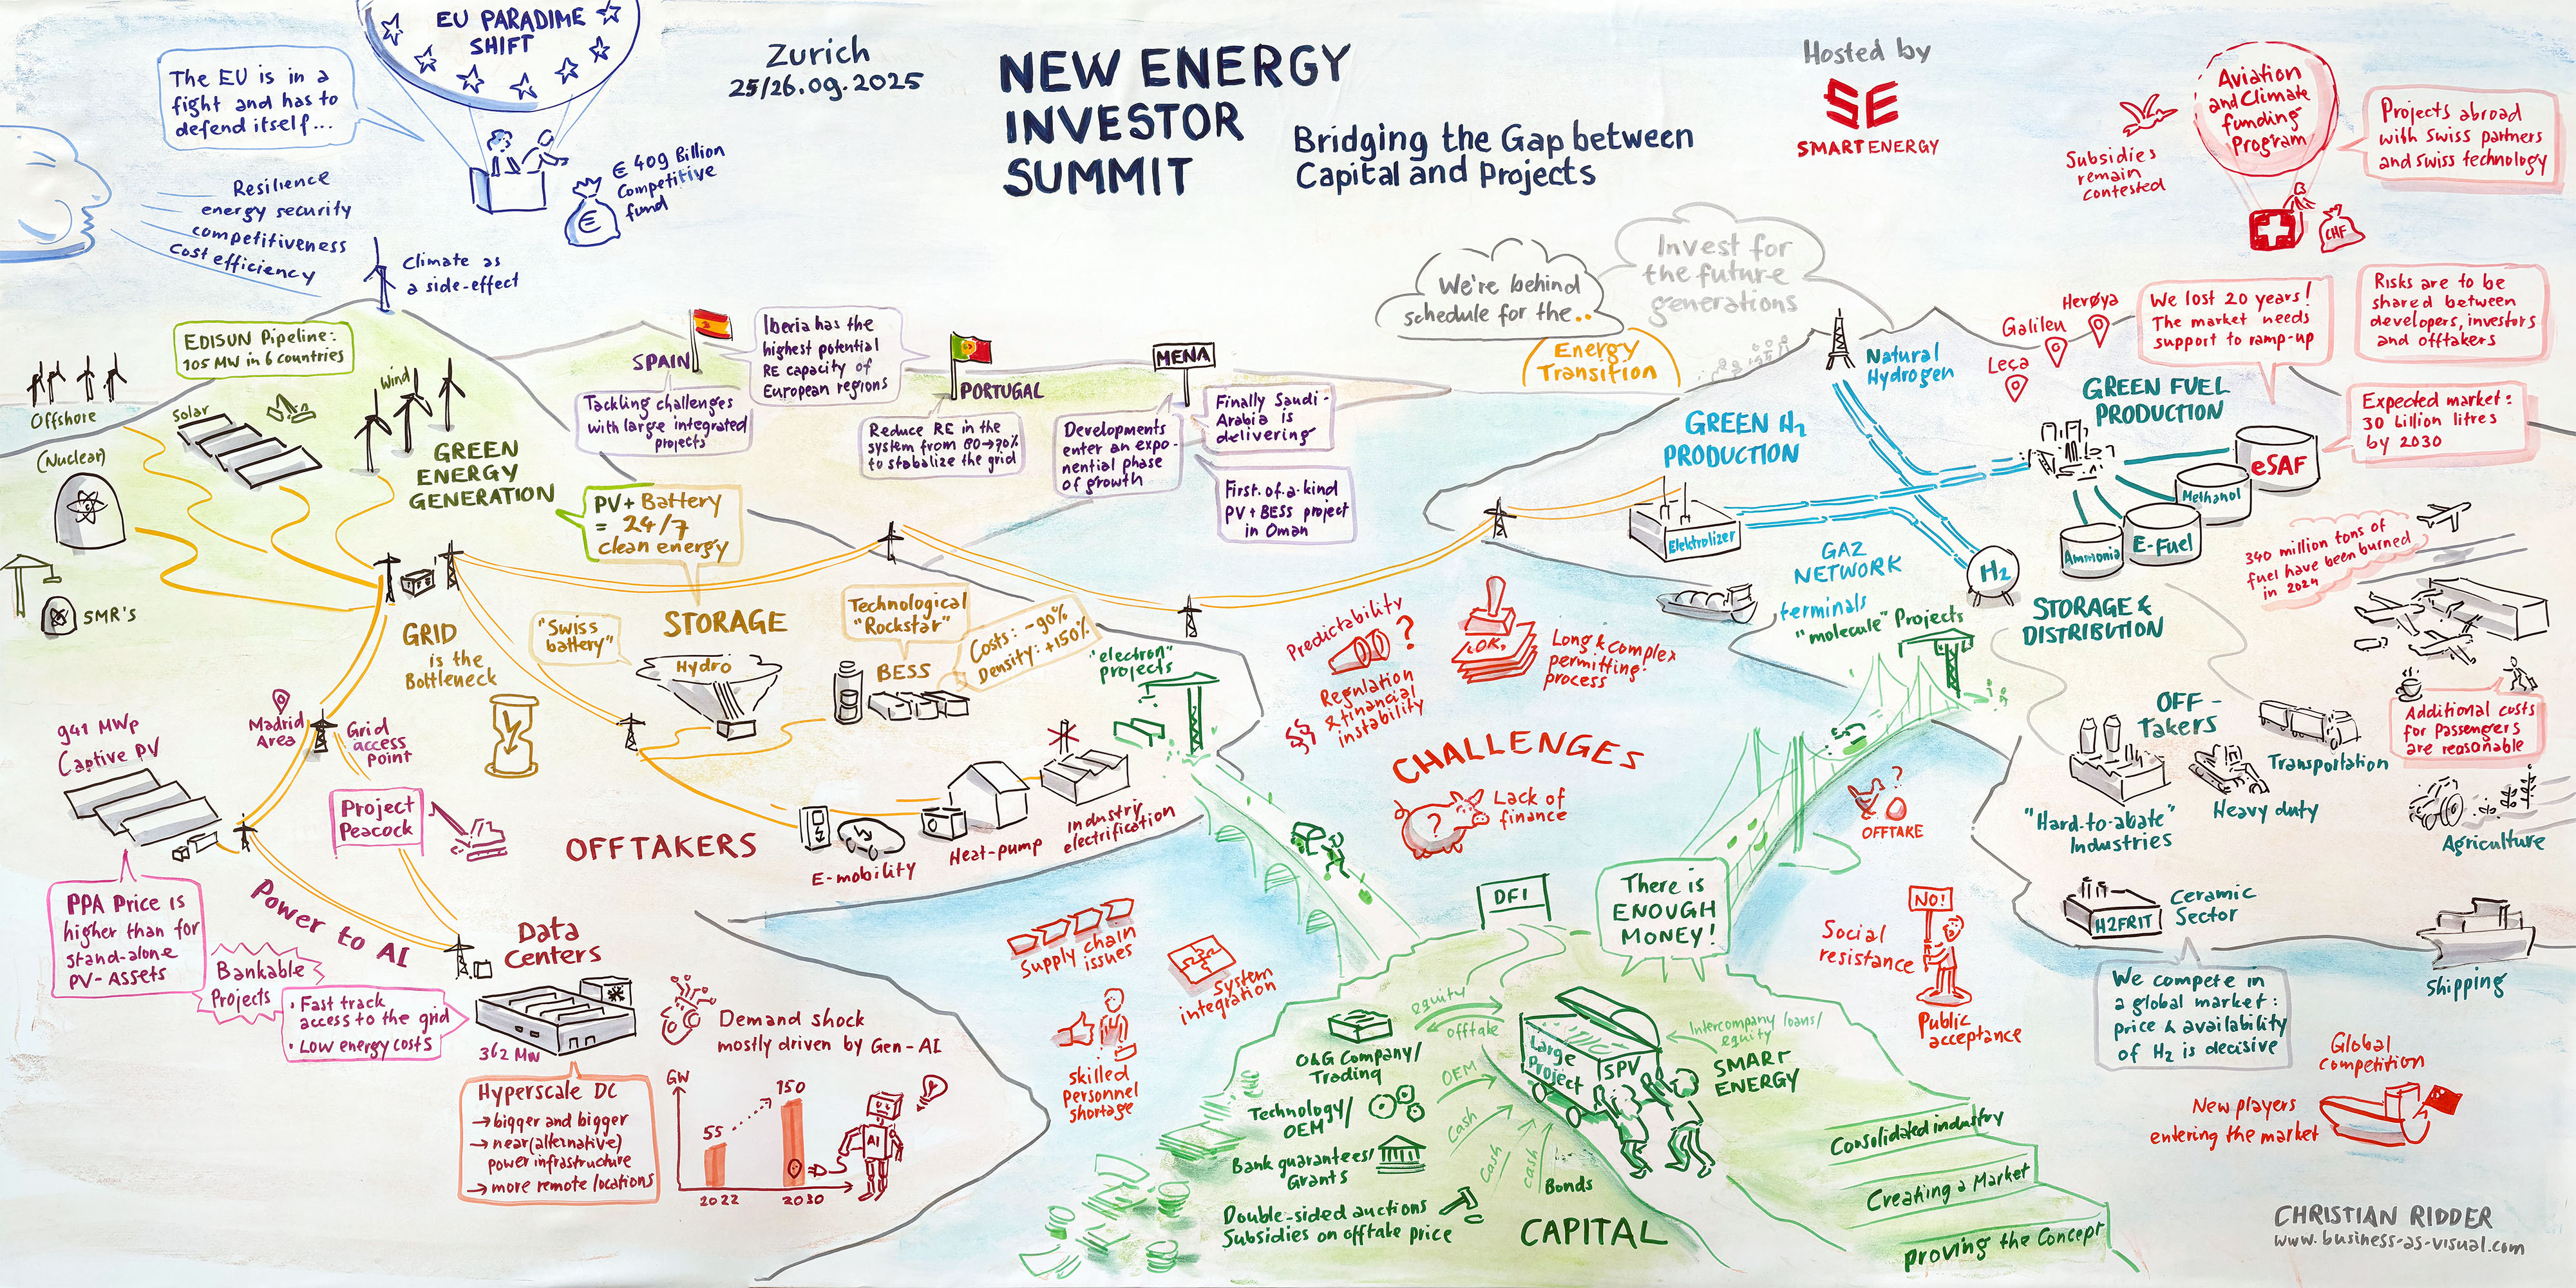 EU PARADIME
SHIFT
The EU is in a
fight and has to
defend itself...
Resilience
energy security
competitiveness
cost efficiency
€ 409 Billion
Competitive
fund
€
Climate as
a side-effect
Zurich
25/26.09.2025
NEW ENERGY
INVESTOR
SUMMIT
Bridging the Gap between
Capital and Projects
Hosted by
SE
SMARTENERGY
Aviation
and Climate
funding
Program
Subsidies
remain
contested
CHF
Projects abroad
with Swiss partners
and Swiss technology
We're behind
schedule for the..
Invest for
the future
generations
Energy
Transition
EDISUN Pipeline:
105 MW in 6 countries
Offshore
Solar
Wind
(Nuclear)
SMR's
GREEN
ENERGY
GENERATION
SPAIN
Iberia has the
highest potential
RE capacity of
European regions
Tackling challenges
with large integrated
projects
PORTUGAL
Reduce RE in the
system from 80→70%
to stabalize the grid
MENA
Developments
enter an expo-
nential phase
of growth
Finally Saudi-
Arabia is
delivering
First-of-a-kind
PV+BESS project
in Oman
PV+ Battery
= 24/7
clean energy
GRID
is the
Bottleneck
STORAGE
"Swiss
battery"
Hydro
Technological
"Rockstar"
BESS
Costs: -90%
Density: +150%
"electron"
projects
941 MWp
Captive PV
Madrid
Area
Grid
access
point
Project
Peacock
PPA Price is
higher than for
stand-alone
PV-Assets
Bankable
Projects
• Fast track
access to the grid
• Low energy costs
Power to AI
OFFTAKERS
E-mobility
Heat-pump
Industry
electrification
Data
Centers
362 MW
Demand shock
mostly driven by Gen-AI
Hyperscale DC
→ bigger and bigger
→ near (alternative)
power infrastructure
→ more remote locations
GW
55
150
2022
2030
AI
Predictability
?
Regulation
& financial
instability
§§
OK
Long & complex
permitting
process
CHALLENGES
?
Lack of
finance
?
OFFTAKE
Supply chain
issues
System
integration
skilled
personnel
shortage
NO!
Social
resistance
Public
acceptance
Global
competition
New players
entering the market
Natural
Hydrogen
GREEN H2
PRODUCTION
Elektrolizer
GAZ
NETWORK
terminals
"molecule" Projects
H2
Leça
Galileu
Herøya
We lost 20 years!
The market needs
support to ramp-up
Risks are to be
shared between
developers, investors
and offtakers
GREEN FUEL
PRODUCTION
Expected market:
30 billion litres
by 2030
eSAF
Methanol
E-Fuel
Ammonia
340 million tons of
fuel have been burned
in 2024
STORAGE &
DISTRIBUTION
OFF-
TAKERS
Additional costs
for passengers
are reasonable
Transportation
Heavy duty
"Hard-to-abate"
Industries
Agriculture
H2FRIT
Ceramic
Sector
Shipping
We compete in
a global market:
price & availability
of H2 is decisive
DFI
There is
ENOUGH
MONEY!
equity
offtake
O&G Company/
Trading
OEM
Technology/
OEM
Cash
Bank guarantees/
Grants
Cash
Cash
Bonds
Double-sided auctions
Subsidies on offtake price
Large
Project
SPV
Intercompany loans/
equity
SMART
ENERGY
CAPITAL
Consolidated industry
Creating a Market
proving the Concept
CHRISTIAN RIDDER
www.business-as-visual.com